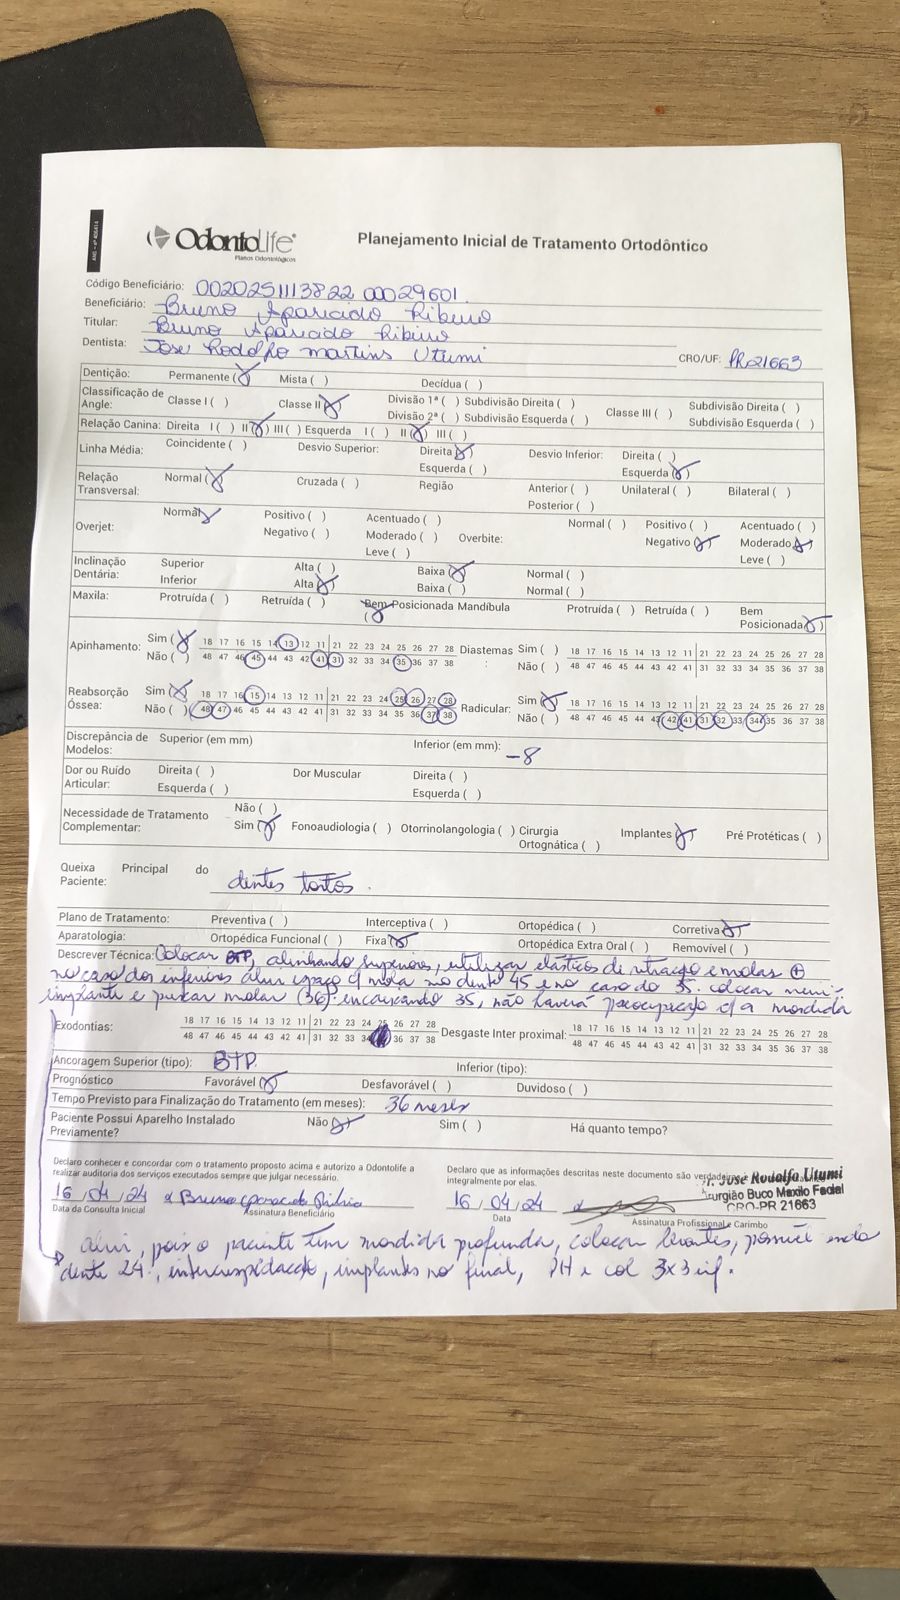 ANS - nº 406414
OdontoLife®
Planos Odontológicos
Planejamento Inicial de Tratamento Ortodôntico
Código Beneficiário: 0020251113822 00029601
Beneficiário: Bruno Aparecido Ribeiro
Titular: Bruno Aparecido Ribeiro
Dentista: Jose Rodolfo Martins Utumi CRO/UF: PR21663
Dentição: Permanente (X) Mista ( ) Decídua ( )
Classificação de Angle: Classe I ( ) Classe II (X) Divisão 1ª ( ) Subdivisão Direita ( ) Classe III ( ) Subdivisão Direita ( )
Divisão 2ª ( ) Subdivisão Esquerda ( ) Subdivisão Esquerda ( )
Relação Canina: Direita I ( ) II (X) III ( ) Esquerda I ( ) II (X) III ( )
Linha Média: Coincidente ( ) Desvio Superior: Direita (X) Desvio Inferior: Direita ( )
Esquerda ( ) Esquerda (X)
Relação Transversal: Normal (X) Cruzada ( ) Região Anterior ( ) Unilateral ( ) Bilateral ( )
Posterior ( )
Overjet: Normal (X) Positivo ( ) Acentuado ( ) Overbite: Normal ( ) Positivo ( ) Acentuado ( )
Negativo ( ) Moderado ( ) Negativo (X) Moderado (X)
Leve ( ) Leve ( )
Inclinação Dentária: Superior Alta ( ) Baixa (X) Normal ( )
Inferior Alta (X) Baixa ( ) Normal ( )
Maxila: Protruída ( ) Retruída ( ) Bem Posicionada (X) Mandíbula Protruída ( ) Retruída ( ) Bem Posicionada (X)
Apinhamento: Sim (X) 18 17 16 15 14 13 12 11 21 22 23 24 25 26 27 28 Diastemas : Sim ( ) 18 17 16 15 14 13 12 11 21 22 23 24 25 26 27 28
Não ( ) 48 47 46 45 44 43 42 41 31 32 33 34 35 36 37 38 Não ( ) 48 47 46 45 44 43 42 41 31 32 33 34 35 36 37 38
Reabsorção Óssea: Sim (X) 18 17 16 15 14 13 12 11 21 22 23 24 25 26 27 28 Radicular: Sim (X) 18 17 16 15 14 13 12 11 21 22 23 24 25 26 27 28
Não ( ) 48 47 46 45 44 43 42 41 31 32 33 34 35 36 37 38 Não ( ) 48 47 46 45 44 43 42 41 31 32 33 34 35 36 37 38
Discrepância de Modelos: Superior (em mm) Inferior (em mm): -8
Dor ou Ruído Articular: Direita ( ) Dor Muscular Direita ( )
Esquerda ( ) Esquerda ( )
Necessidade de Tratamento Complementar: Não ( )
Sim (X) Fonoaudiologia ( ) Otorrinolangologia ( ) Cirurgia Ortognática ( ) Implantes (X) Pré Protéticas ( )
Queixa Principal do Paciente: dentes tortos.
Plano de Tratamento: Preventiva ( ) Interceptiva ( ) Ortopédica ( ) Corretiva (X)
Aparatologia: Ortopédica Funcional ( ) Fixa (X) Ortopédica Extra Oral ( ) Removível ( )
Descrever Técnica: Colocar BTP, alinhando superiores, utilizar elásticos de retração e molas +
no caso dos inferiores abrir espaço c/ mola no dente 45 e no caso do 35. colocar mini-
implante e puxar molar (36). encaixando 35, não haverá preocupação c/ a mordida
Exodontias: 18 17 16 15 14 13 12 11 21 22 23 24 25 26 27 28 Desgaste Inter proximal: 18 17 16 15 14 13 12 11 21 22 23 24 25 26 27 28
48 47 46 45 44 43 42 41 31 32 33 34 36 37 38 48 47 46 45 44 43 42 41 31 32 33 34 35 36 37 38
Ancoragem Superior (tipo): BTP. Inferior (tipo):
Prognóstico Favorável (X) Desfavorável ( ) Duvidoso ( )
Tempo Previsto para Finalização do Tratamento (em meses): 36 meses
Paciente Possui Aparelho Instalado Previamente? Não (X) Sim ( ) Há quanto tempo?
Declaro conhecer e concordar com o tratamento proposto acima e autorizo a Odontolife a
realizar auditoria dos serviços executados sempre que julgar necessário.
Declaro que as informações descritas neste documento são verdadeiras
integralmente por elas.
16/04/24 Bruno Aparecido Ribeiro
Data da Consulta Inicial Assinatura Beneficiário
16/04/24
Data Assinatura Profissional e Carimbo
José Rodolfo Utumi
Cirurgião Buco Maxilo Facial
CRO-PR 21663
abrir, pois o paciente tem mordida profunda, colocar levantes, possível
dente 24., intercuspidação, implantes no final, PH e col 3x3 inf.